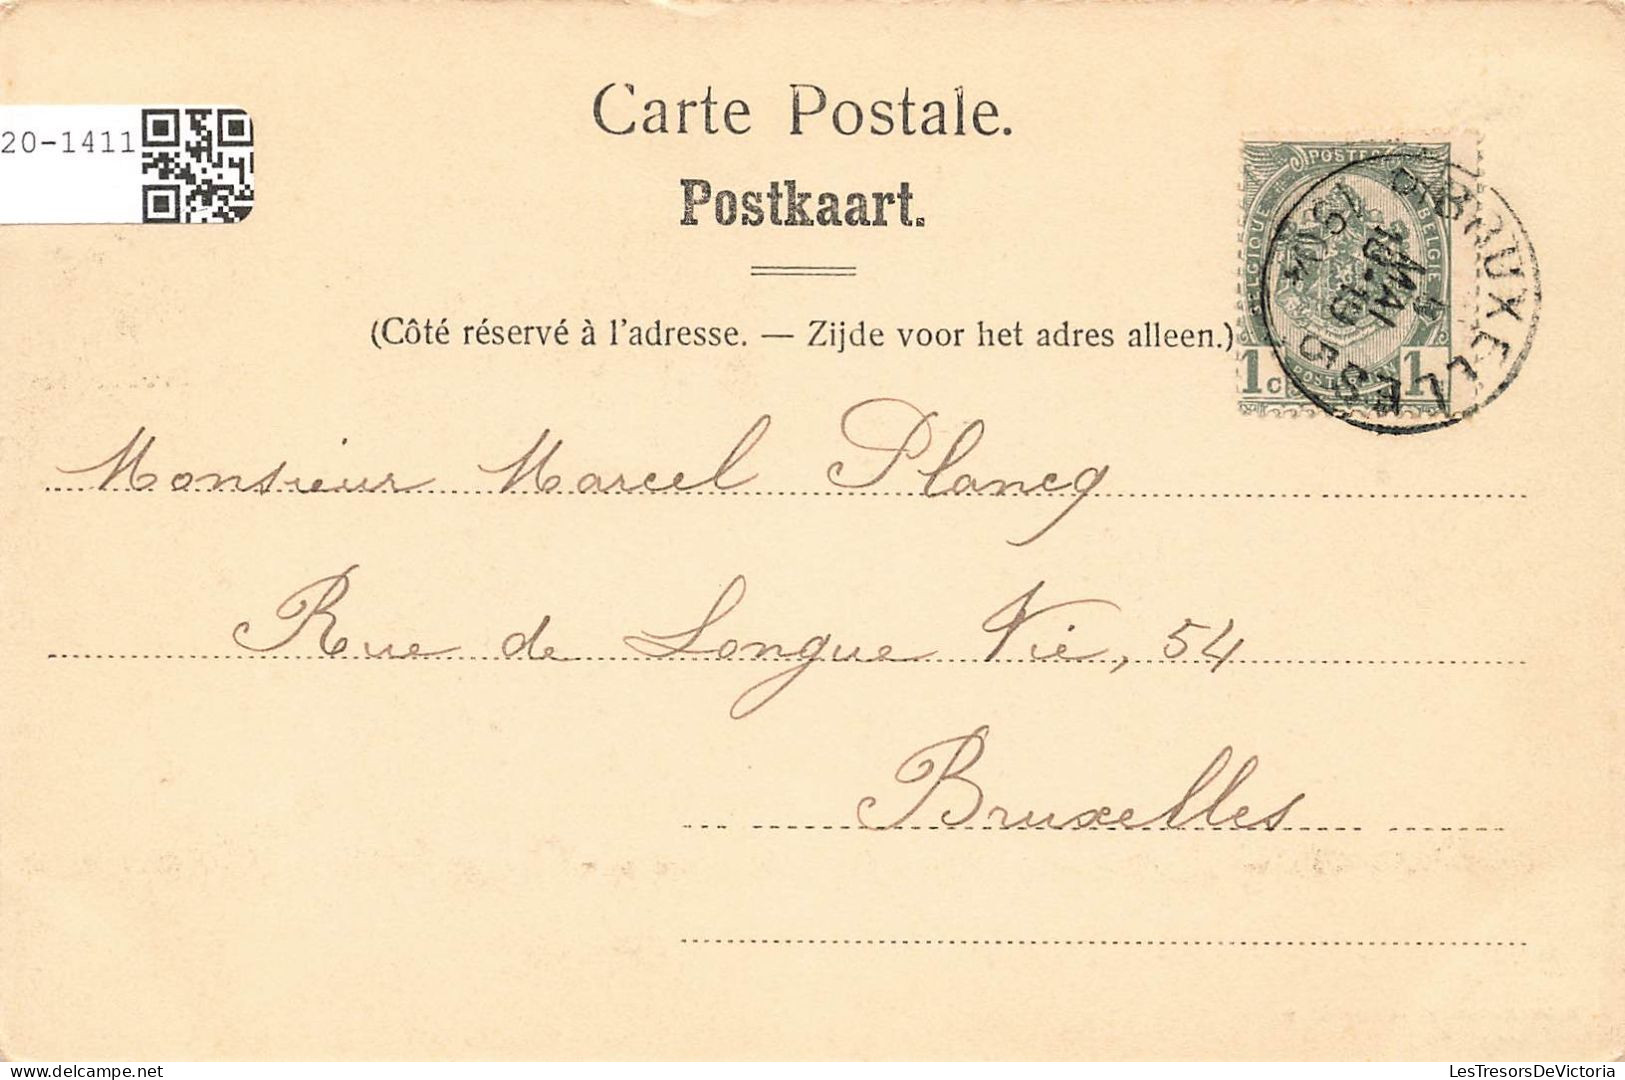 Carte Postale.
20-1411
Postkaart.
(Côté réservé à l'adresse. — Zijde voor het adres alleen.)
POSTES
BELGIQUE
BELGIE
1 c
1
BRUXELLES
MAI
Monsieur Marcel Plancq
Rue de Longue Vie, 54
Bruxelles
LesTresorsDeVictoria